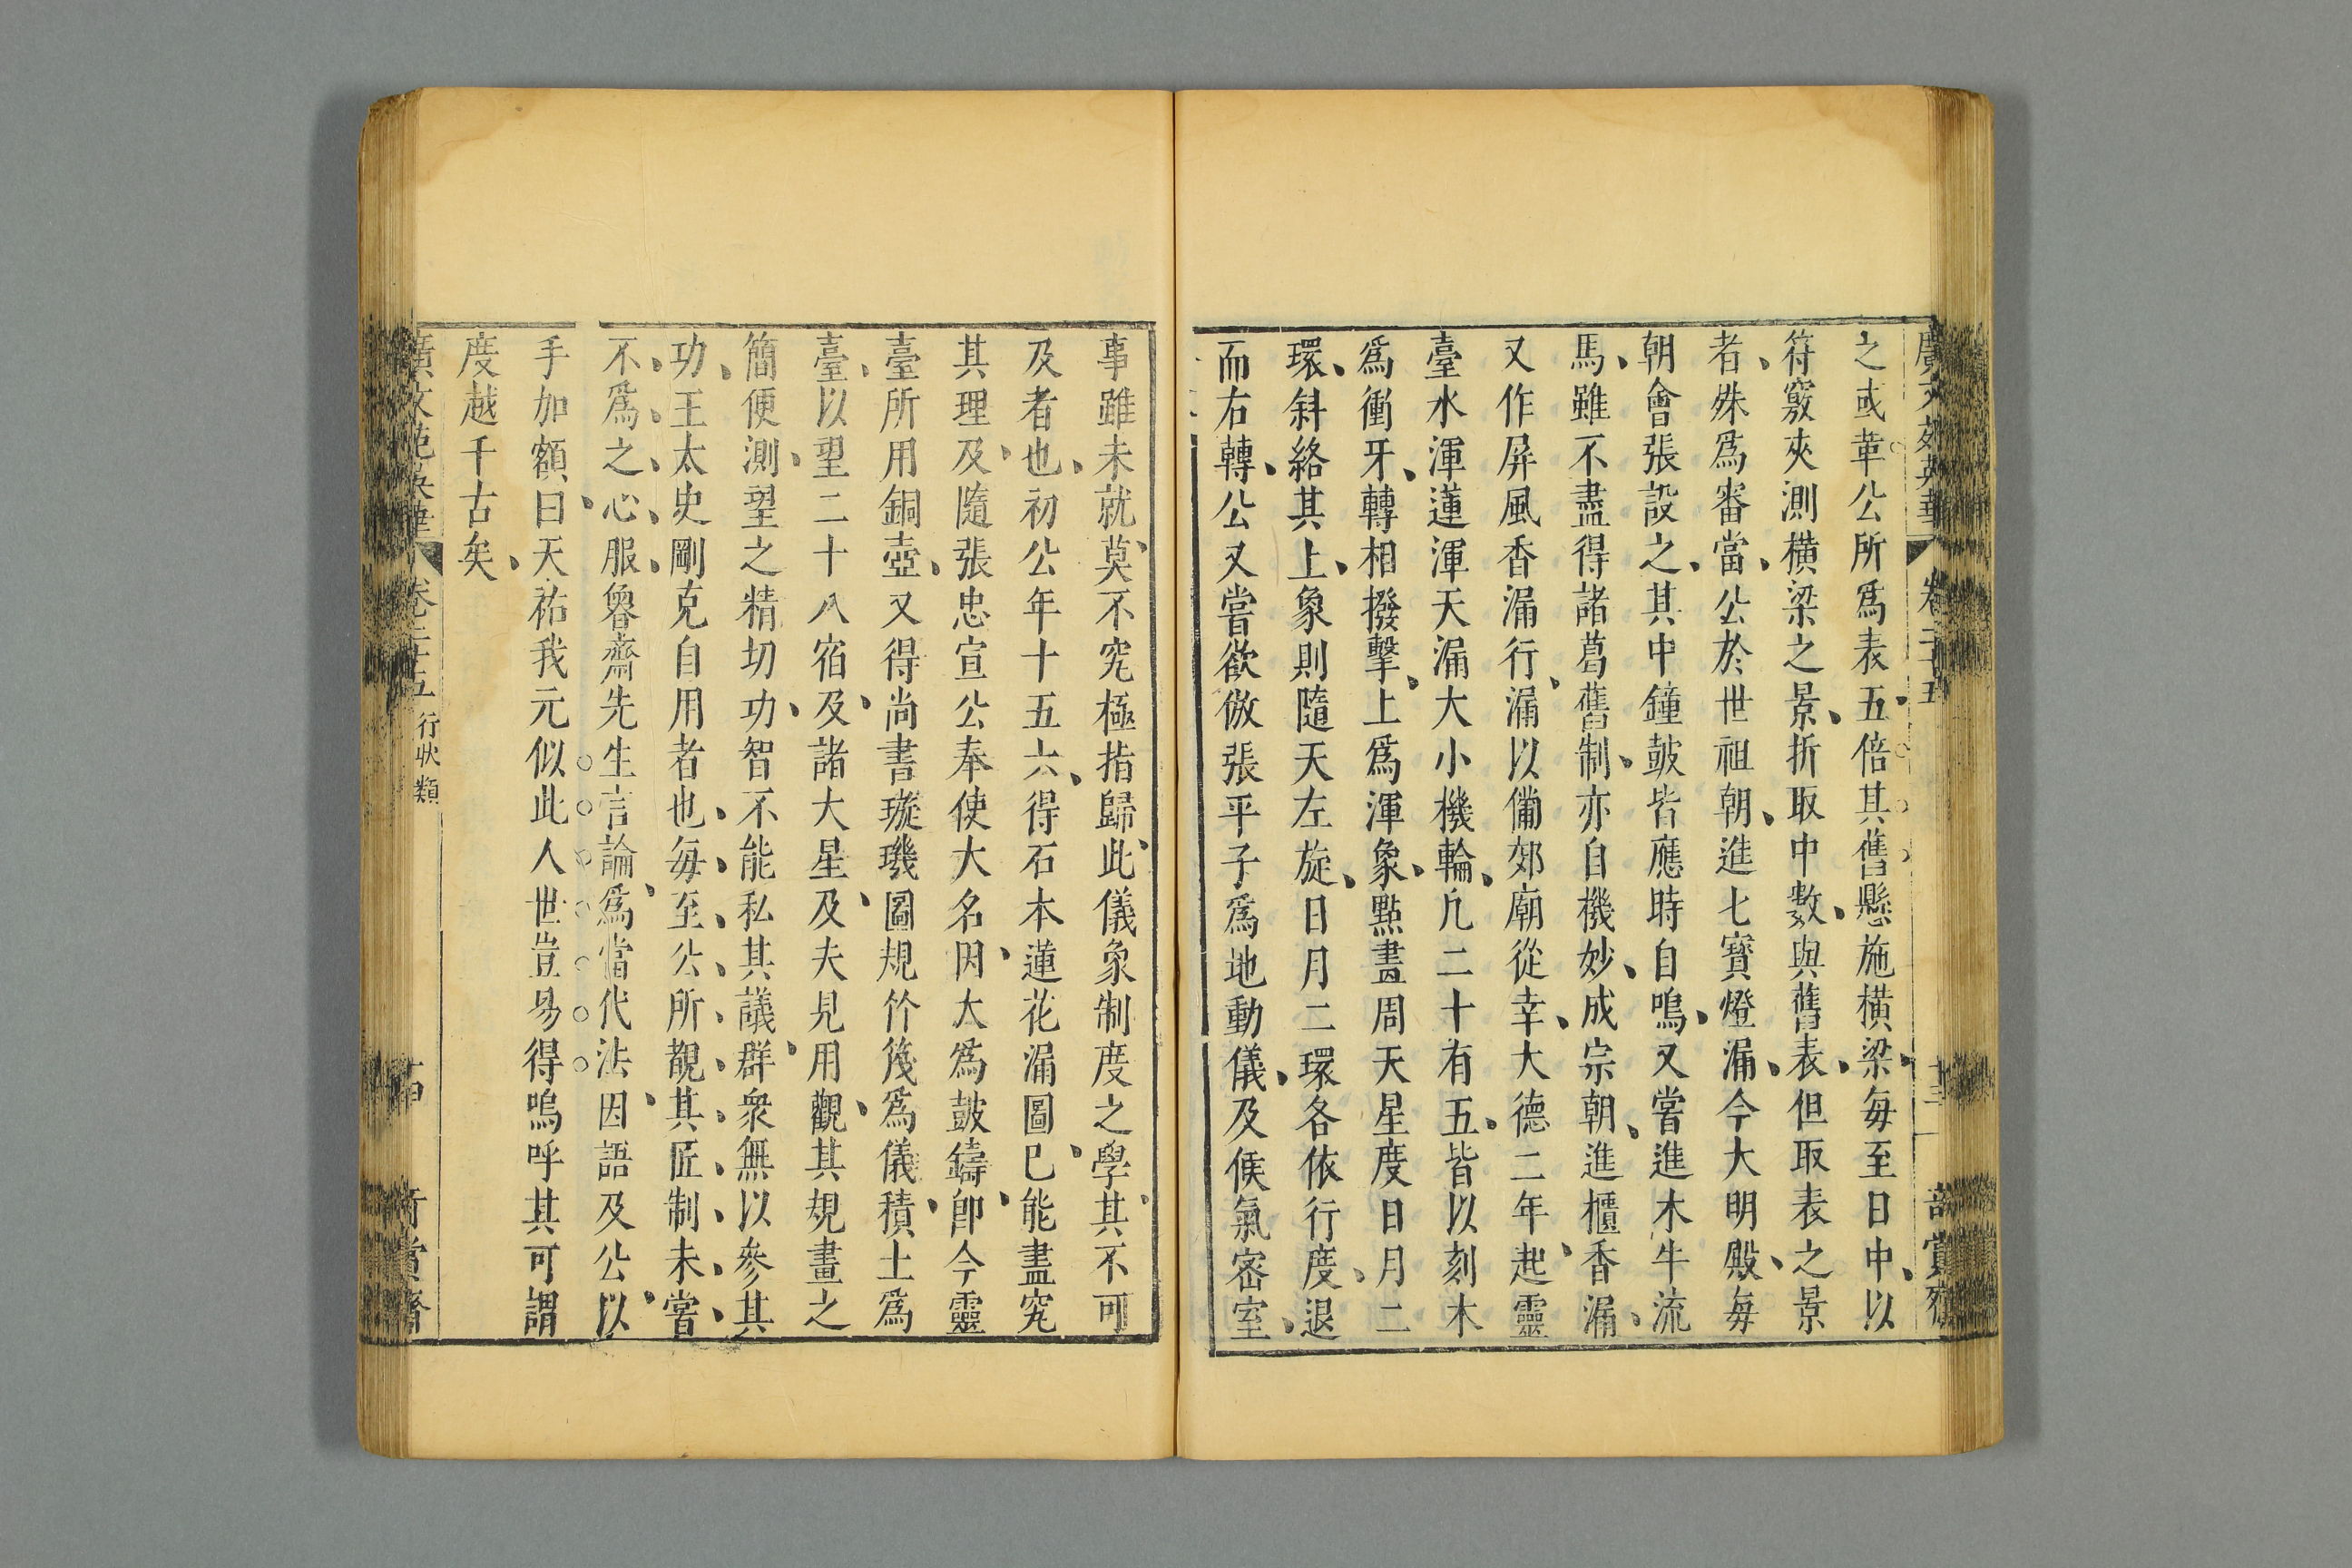 廣文苑英華 卷二十五 十三 奇賞齋
之或華公所爲表五倍其舊懸施橫梁每至日中以
符竅夾測橫梁之景折取中數與舊表但取表之景
者殊爲審當公於世祖朝進七寶燈漏今大明殿每
朝會張設之其中鐘皷皆應時自鳴又嘗進木牛流
馬雖不盡得諸葛舊制亦自機妙成宗朝進櫃香漏
又作屏風香漏行漏以備郊廟從幸大德二年起靈
臺水渾蓮渾天漏大小機輪凡二十有五皆以刻木
爲衝牙轉相撥擊上爲渾象點畫周天星度日月二
環斜絡其上象則隨天左旋日月二環各依行度退
而右轉公又嘗欲倣張平子爲地動儀及候氣密室
事雖未就莫不究極指歸此儀象制度之學其不可
及者也初公年十五六得石本蓮花漏圖已能盡究
其理及隨張忠宣公奉使大名因大爲鼓鑄卽今靈
臺所用銅壺又得尚書璇璣圖規竹篾爲儀積土爲
臺以望二十八宿及諸大星及夫見用觀其規畫之
簡便測望之精切功智不能私其議群衆無以參其
功王太史剛克自用者也每至公所觀其匠制未嘗
不爲之心服魯齋先生言論爲當代法因語及公以
手加額曰天祐我元似此人世豈易得嗚呼其可謂
度越千古矣
廣文苑英華 卷二十五 行狀類 十四 奇賞齋